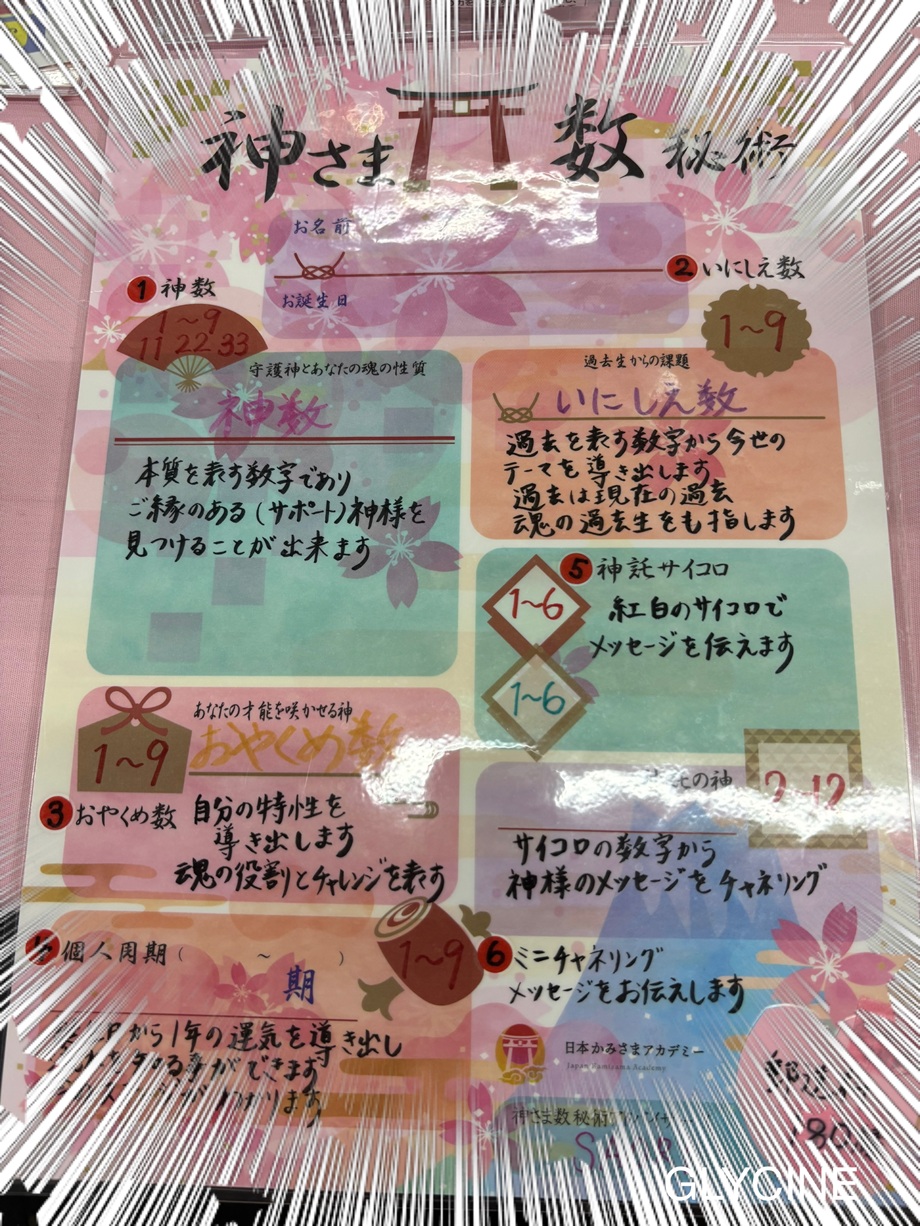 神さま 数 秘術
お名前
お誕生日
1 神数
1~9
11 22 33
守護神とあなたの魂の性質
神数
本質を表す数字であり
ご縁のある(サポート)神様を
見つけることが出来ます
2 いにしえ数
1~9
過去生からの課題
いにしえ数
過去を表す数字から今世の
テーマを導き出します
過去は現在の過去
魂の過去生をも指します
5 神託サイコロ
1~6
1~6
紅白のサイコロで
メッセージを伝えます
あなたの才能を咲かせる神
おやくめ数
1~9
3 おやくめ数
自分の特性を
導き出します
魂の役割とチャレンジを表す
の神
2~12
サイコロの数字から
神様のメッセージをチャネリング
個人周期( ~ )
期
1~9
から1年の運気を導き出し
事ができます
ます
6 ミニチャネリング
メッセージをお伝えします
日本かみさまアカデミー
Japan Kamisama Academy
神さま数秘術
GLYCINE